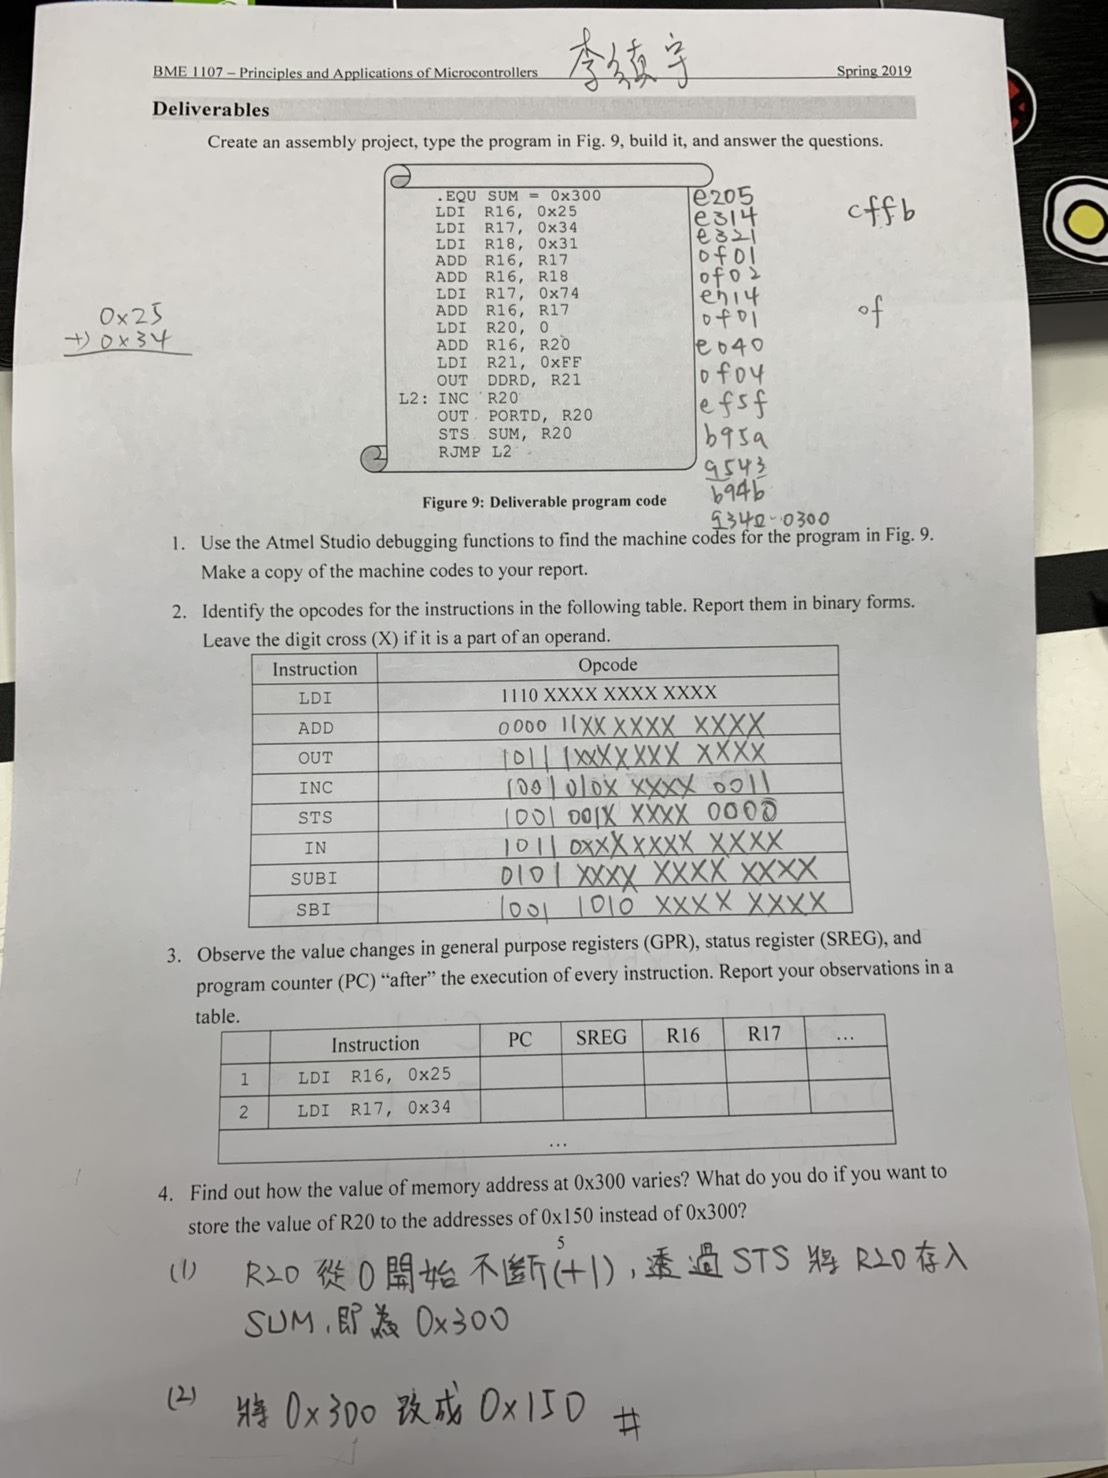 李鎮宇
BME 1107 – Principles and Applications of Microcontrollers Spring 2019
Deliverables
Create an assembly project, type the program in Fig. 9, build it, and answer the questions.
.EQU SUM = 0x300
LDI R16, 0x25
LDI R17, 0x34
LDI R18, 0x31
ADD R16, R17
ADD R16, R18
LDI R17, 0x74
ADD R16, R17
LDI R20, 0
ADD R16, R20
LDI R21, 0xFF
OUT DDRD, R21
L2: INC R20
OUT PORTD, R20
STS SUM, R20
RJMP L2
e205
e314
e321
0f01
0f02
e714
0f01
e040
0f04
ef5f
b95a
9543
b94b
9340-0300
cffb
of
0x25
+) 0x34
Figure 9: Deliverable program code
1. Use the Atmel Studio debugging functions to find the machine codes for the program in Fig. 9.
Make a copy of the machine codes to your report.
2. Identify the opcodes for the instructions in the following table. Report them in binary forms.
Leave the digit cross (X) if it is a part of an operand.
Instruction Opcode
LDI 1110 XXXX XXXX XXXX
ADD 0000 11XX XXXX XXXX
OUT 1011 1XXX XXXX XXXX
INC 1001 010X XXXX 0011
STS 1001 001X XXXX 0000
IN 1011 0XXX XXXX XXXX
SUBI 0101 XXXX XXXX XXXX
SBI 1001 1010 XXXX XXXX
3. Observe the value changes in general purpose registers (GPR), status register (SREG), and
program counter (PC) “after” the execution of every instruction. Report your observations in a
table.
Instruction PC SREG R16 R17 ...
1 LDI R16, 0x25
2 LDI R17, 0x34
...
4. Find out how the value of memory address at 0x300 varies? What do you do if you want to
store the value of R20 to the addresses of 0x150 instead of 0x300?
5
(1) R20 從 0 開始 不斷(+1), 透過 STS 將 R20 存入
SUM, 即為 0x300
(2) 將 0x300 改成 0x150 #